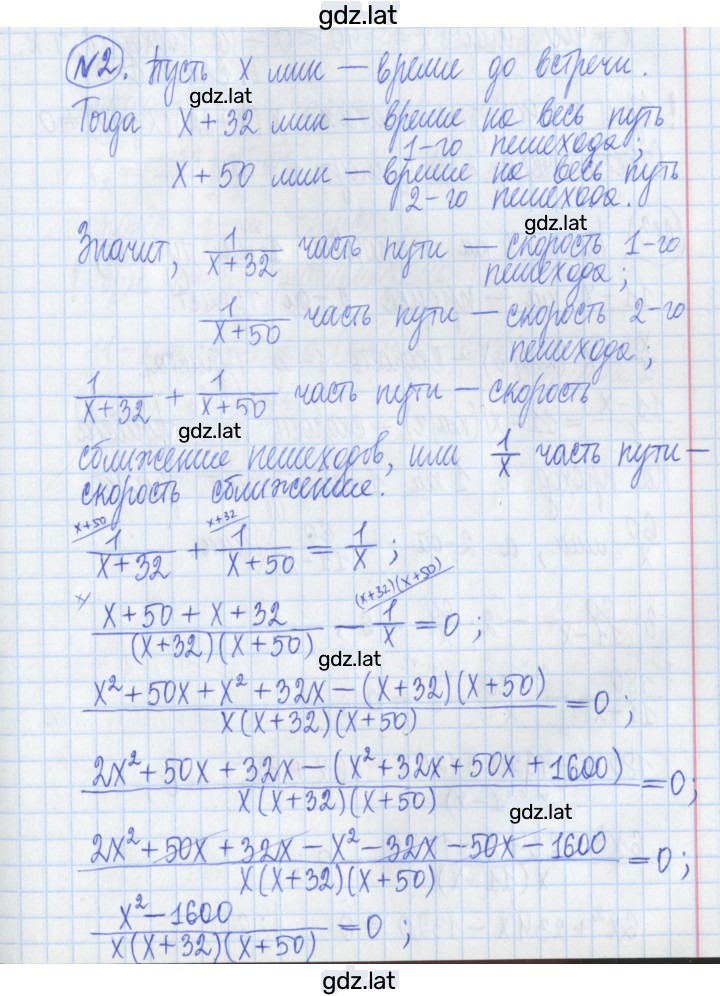 gdz.lat
№2. Пусть x мин — время до встречи.
gdz.lat
Тогда x+32 мин — время на весь путь
1-го пешехода;
x+50 мин — время на весь путь
2-го пешехода.
gdz.lat
Значит, 1/(x+32) часть пути — скорость 1-го
пешехода;
1/(x+50) часть пути — скорость 2-го
пешехода;
1/(x+32) + 1/(x+50) часть пути — скорость
gdz.lat
сближения пешеходов, или 1/x часть пути —
скорость сближения.
x+50 x+32
1/(x+32) + 1/(x+50) = 1/x ;
x (x+32)(x+50)
(x+50+x+32)/((x+32)(x+50)) − 1/x = 0 ;
gdz.lat
(x²+50x+x²+32x−(x+32)(x+50))/(x(x+32)(x+50)) = 0 ;
(2x²+50x+32x−(x²+32x+50x+1600))/(x(x+32)(x+50)) = 0;
gdz.lat
(2x²+50x+32x−x²−32x−50x−1600)/(x(x+32)(x+50)) = 0 ;
(x²−1600)/(x(x+32)(x+50)) = 0 ;
gdz.lat